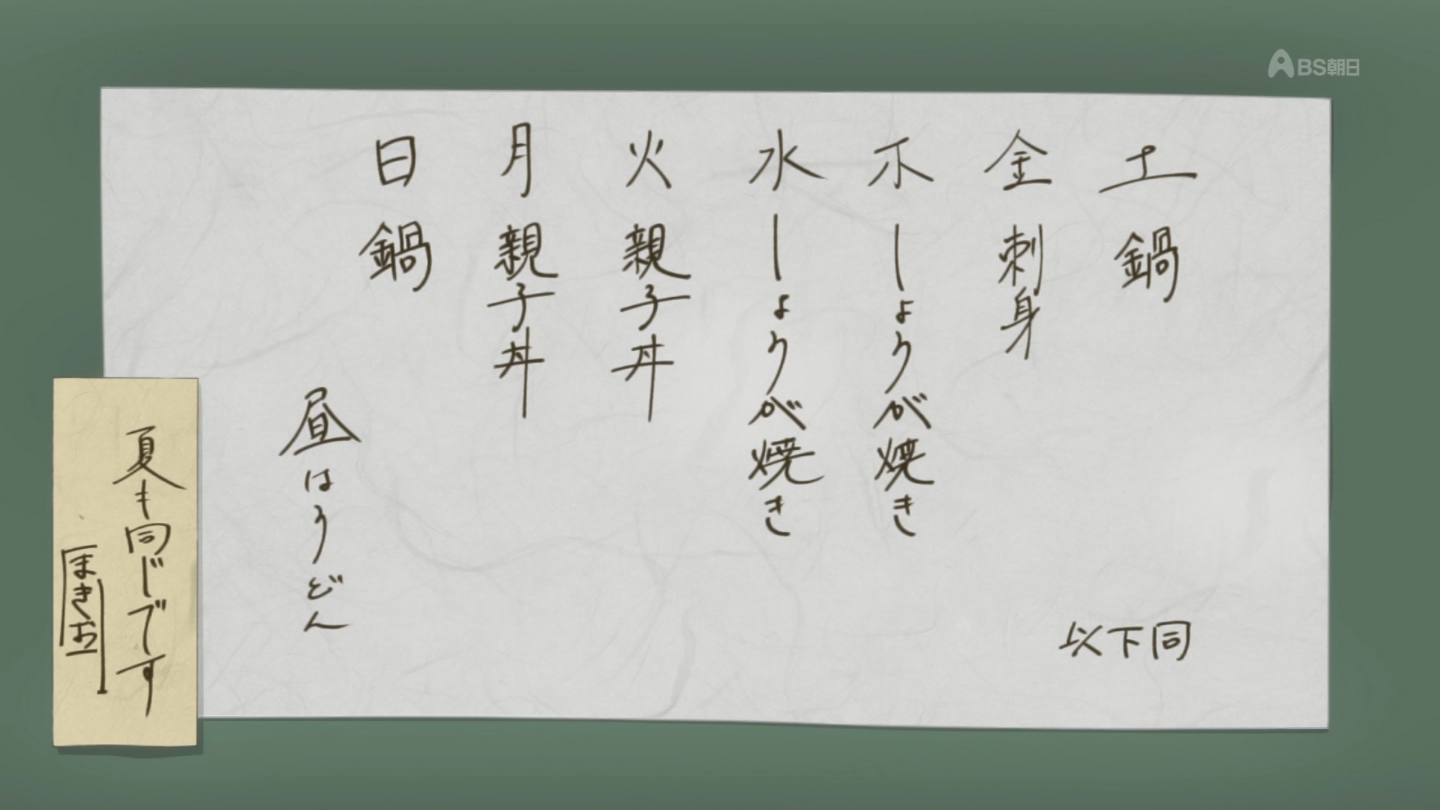 BS朝日
土 鍋
金 刺身
木 しょうが焼き
水 しょうが焼き
火 親子丼
月 親子丼
日 鍋
昼はうどん
以下同
夏も同じです
まきお